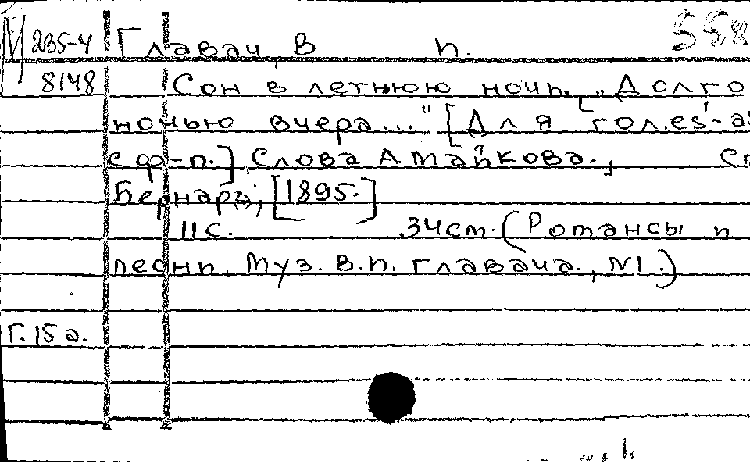 М 235-4 Главач, В п. 558
8148 Сон в летнюю ночь. „Долго
ночью вчера..." [Для голоса
с ф-п.] Слова А. Майкова.,
Бернард, [1895.]
11 с. 34 см. (Романсы и
песни. Муз. В.п. Главача., N1.)
Г. 15 а.